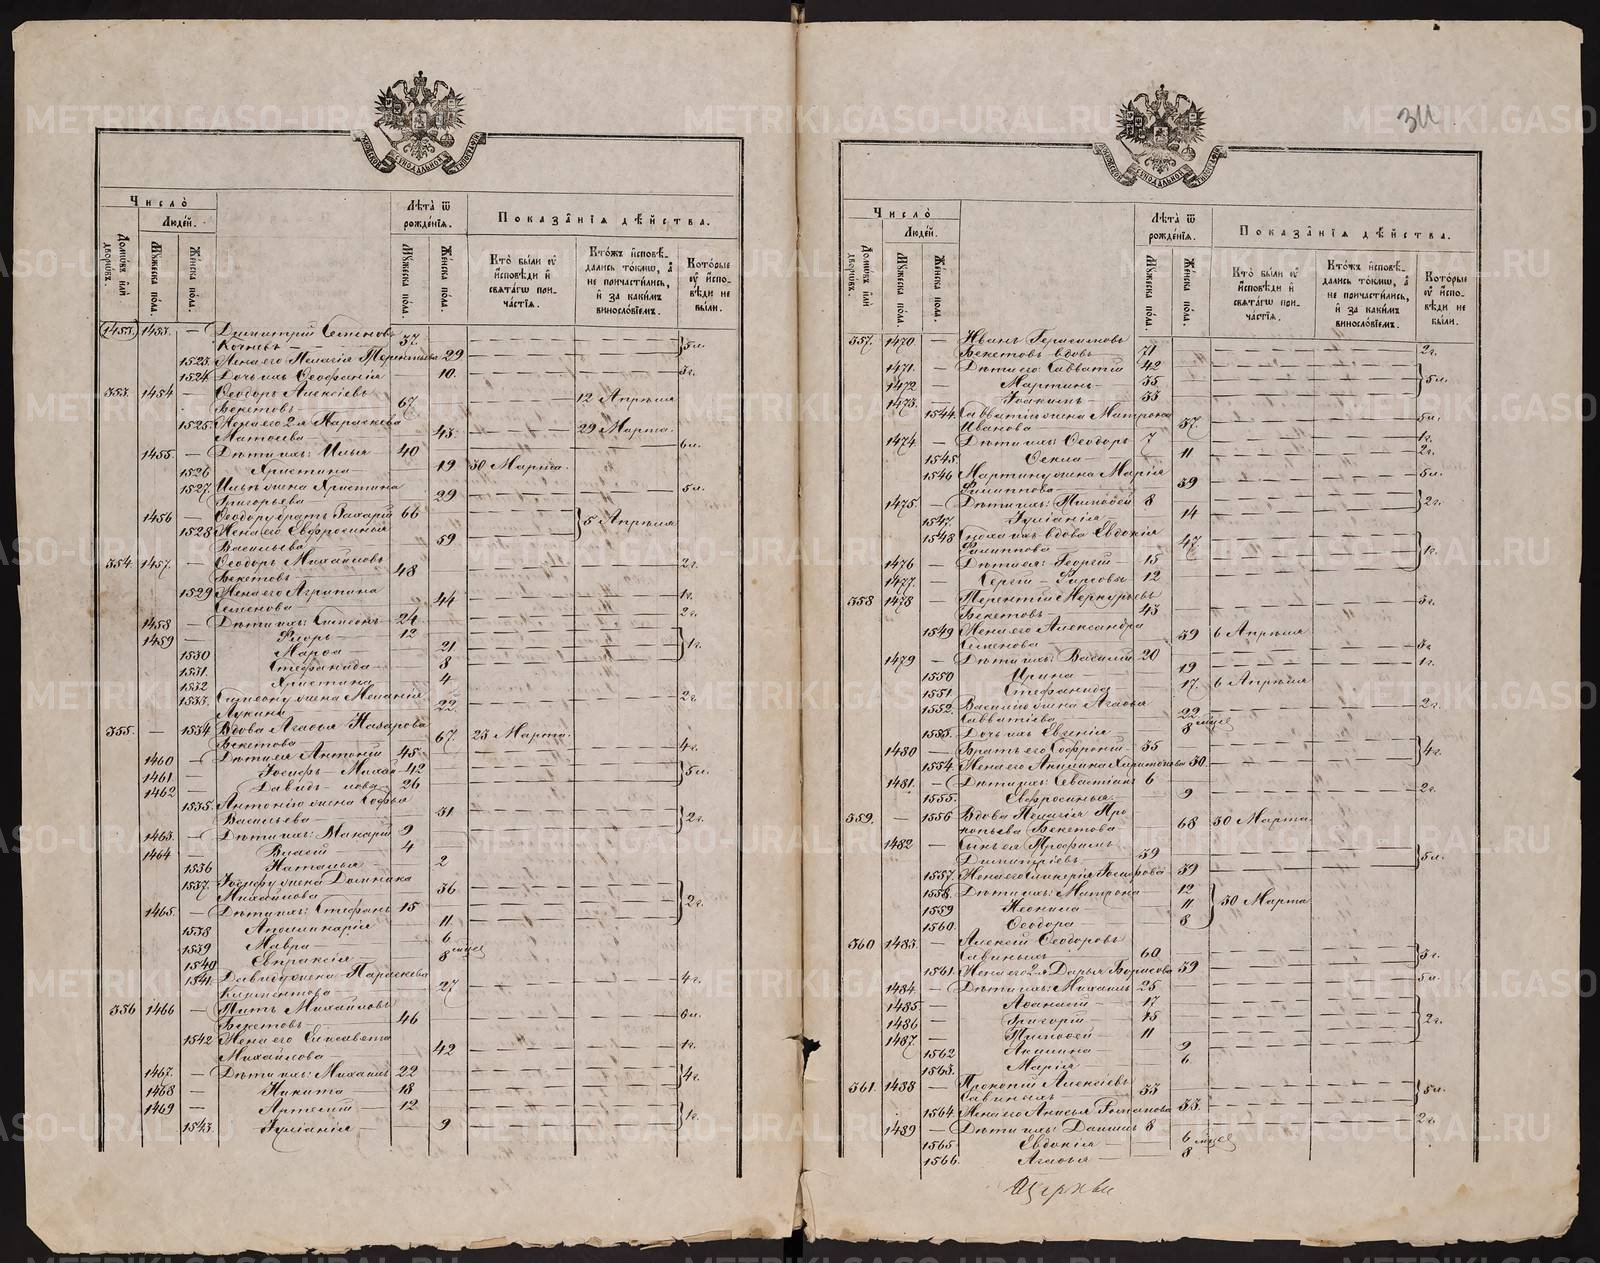 34
МОСКОВСКОЙ СѴНОДАЛЬНОЙ ТИПОГРАФІИ
Число̀
Людей.
Домѡвъ и҆лѝ дворѡвъ.
Мꙋжеска пола.
Женска пола.
Лѣта̀ ѿ рожденїѧ.
Мꙋжеска пола.
Женска пола.
Показанїѧ дѣйства.
Кто̀ были ᲂу҆ и҆сповѣди и҆ свѧтагѡ причастїѧ.
Ктожъ и҆сповѣдались токмѡ, а҆ не причастились, и҆ за какимъ винословїемъ.
Которые ᲂу҆ и҆сповѣди не были.
1453. — Димитрій Семеновъ
Кочневъ — 37. 5 л.
1523. Жена его Пелагія Терентьева 29
1524. Дочь ихъ Ѳеофанія — 10. 3 г.
353. 1454 — Ѳеодоръ Алексіевъ
Бекетовъ 67 12 Апрѣля
1525. Жена его 2я Параскева
Матѳеева — 43. 29 Марта.
1455. — Дѣти ихъ: Илья 40 6 л.
1526 Христина 19 30 Марта.
1527. Ильи жена Христина
Григорьева 29 5 л.
1456 — Ѳеодору братъ Захарій 66
1528 Жена его Евфросинья
Васильева 59 5 Апрѣля
354. 1457. — Ѳеодоръ Михайловъ
Бекетовъ 48 2 г.
1529 Жена его Агрипина
Семенова 44 1 г.
1458 — Дѣти ихъ: Симеонъ 24 2 г.
1459 — Флоръ — 12
1530 Марѳа — 21 1 г.
1531. Стефанида — 8
1532 Христина 4
1533. Симеону жена Меланія
Лукина 22. 2 г.
355. — 1534 Вдова Агафья Назарова
Бекетова 67. 23 Марта.
1460 — Дѣти ея Антоній 45. 4 г.
1461 — Іосифъ — Михай 42
1462 — Давидъ — ловы 26 5 л.
1535. Антонію жена Софья
Васильева 31 2 г.
1463. — Дѣти ихъ: Макарій 9
1464 — Власій — 4
1536 Наталья 2
1537. Іосифу жена Домника
Михайлова 36
1465. — Дѣти ихъ: Стефанъ 15 2 г.
1538 Аполинарія 11
1539 Мавра 6
1540 Евпраксія 8 мцев
1541. Давиду жена Параскева
Климентова 27 4 г.
356 1466 — Титъ Михайловъ
Бекетовъ 46 6 л.
1542 Жена его Елисавета
Михайлова 42 1 г.
1467. — Дѣти ихъ: Михаилъ 22 4 г.
1468 — Никита 18
1469 — Артемій — 12 1 г.
1543. Іуліанія — 9
Число̀
Людей.
Домѡвъ и҆лѝ дворѡвъ.
Мꙋжеска пола.
Женска пола.
Лѣта̀ ѿ рожденїѧ.
Мꙋжеска пола.
Женска пола.
Показанїѧ дѣйства.
Кто̀ были ᲂу҆ и҆сповѣди и҆ свѧтагѡ причастїѧ.
Ктожъ и҆сповѣдались токмѡ, а҆ не причастились, и҆ за какимъ винословїемъ.
Которые ᲂу҆ и҆сповѣди не были.
МОСКОВСКОЙ СѴНОДАЛЬНОЙ ТИПОГРАФІИ
357. 1470. — Иванъ Герасимовъ
Бекетовъ вдовъ 71 2 г.
1471. — Дѣти его: Савватій 42
1472 — Мартинъ — 35 5 л.
1473. — Іоакимъ — 33
1544. Савватія жена Матрона
Иванова 37. 5 л.
1474 — Дѣти ихъ: Ѳеодоръ 7 1 г.
1545 Ѳекла — 11 2 г.
1546 Мартину жена Марія
Филиппова 39 5 л.
1475. — Дѣти ихъ: Тимоѳей 8
1547. Іуліанія — 14 2 г.
1548 Сноха ихъ вдова Евдокія
Филиппова 47
1476 — Дѣти ея: Георгій — 15 1 г.
1477. — Сергій — 12
358 1478 Терентій Меркурьевъ
Бекетовъ 43 3 г.
1549 Жена его Александра
Семенова 39 6 Апрѣля
1479 — Дѣти ихъ: Василій 20 3 г.
1550 Ирина — 19 1 г.
1551. Стефанида 17. 6 Апрѣля
1552. Василію жена Агафья
Савватіева 22 2 г.
1553. Дочь ихъ Евгенія — 8 мцев
1480 — Братъ его Софроній 35
1554. Жена его Акилина Харитонова 30. 4 г.
1481. — Дѣти ихъ: Севастіанъ 6
1555. Евфросинья 9 2 г.
359. — 1556 Вдова Пелагія Про
копьева Бекетова 68 30 Марта
1482 — Сынъ ея Трофимъ
Димитріевъ 39 5 л.
1557. Жена его Гликерія Іосифова 39
1558. Дѣти ихъ: Матрона 12
1559 Неонила — 11 30 Марта
1560. Ѳеодора 8
360 1483. — Алексій Ѳеодоровъ
Савиныхъ 60. 3 г.
1561. Жена его 2я Дарья Борисова 59 5 л.
1484. — Дѣти ихъ: Михаилъ 25
1485 — Аѳанасій — 17
1486 — Григорій — 15 2 г.
1487. — Тимоѳей — 11
1562 Акилина 9
1563. Марія 6
361. 1488 — Прокопій Алексіевъ
Савиныхъ 33 5 л.
1564. Жена его Анисья Романова 33.
1489 — Дѣти ихъ: Даніилъ 8 2 г.
1565 Евдокія — 6
1566. Агафья — 8 мцев
Церкви
METRIKI.GASO-URAL.RU